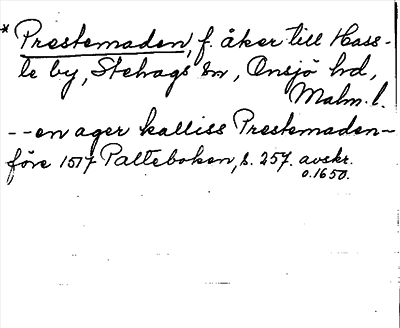 * Prestemaden, f. åker till Hass-
le by, Stehags sn, Onsjö hd,
Malm. l.
-- en ager kalliss Prestemaden --
före 1517 Palteboken, s. 257. avskr.
o. 1650.